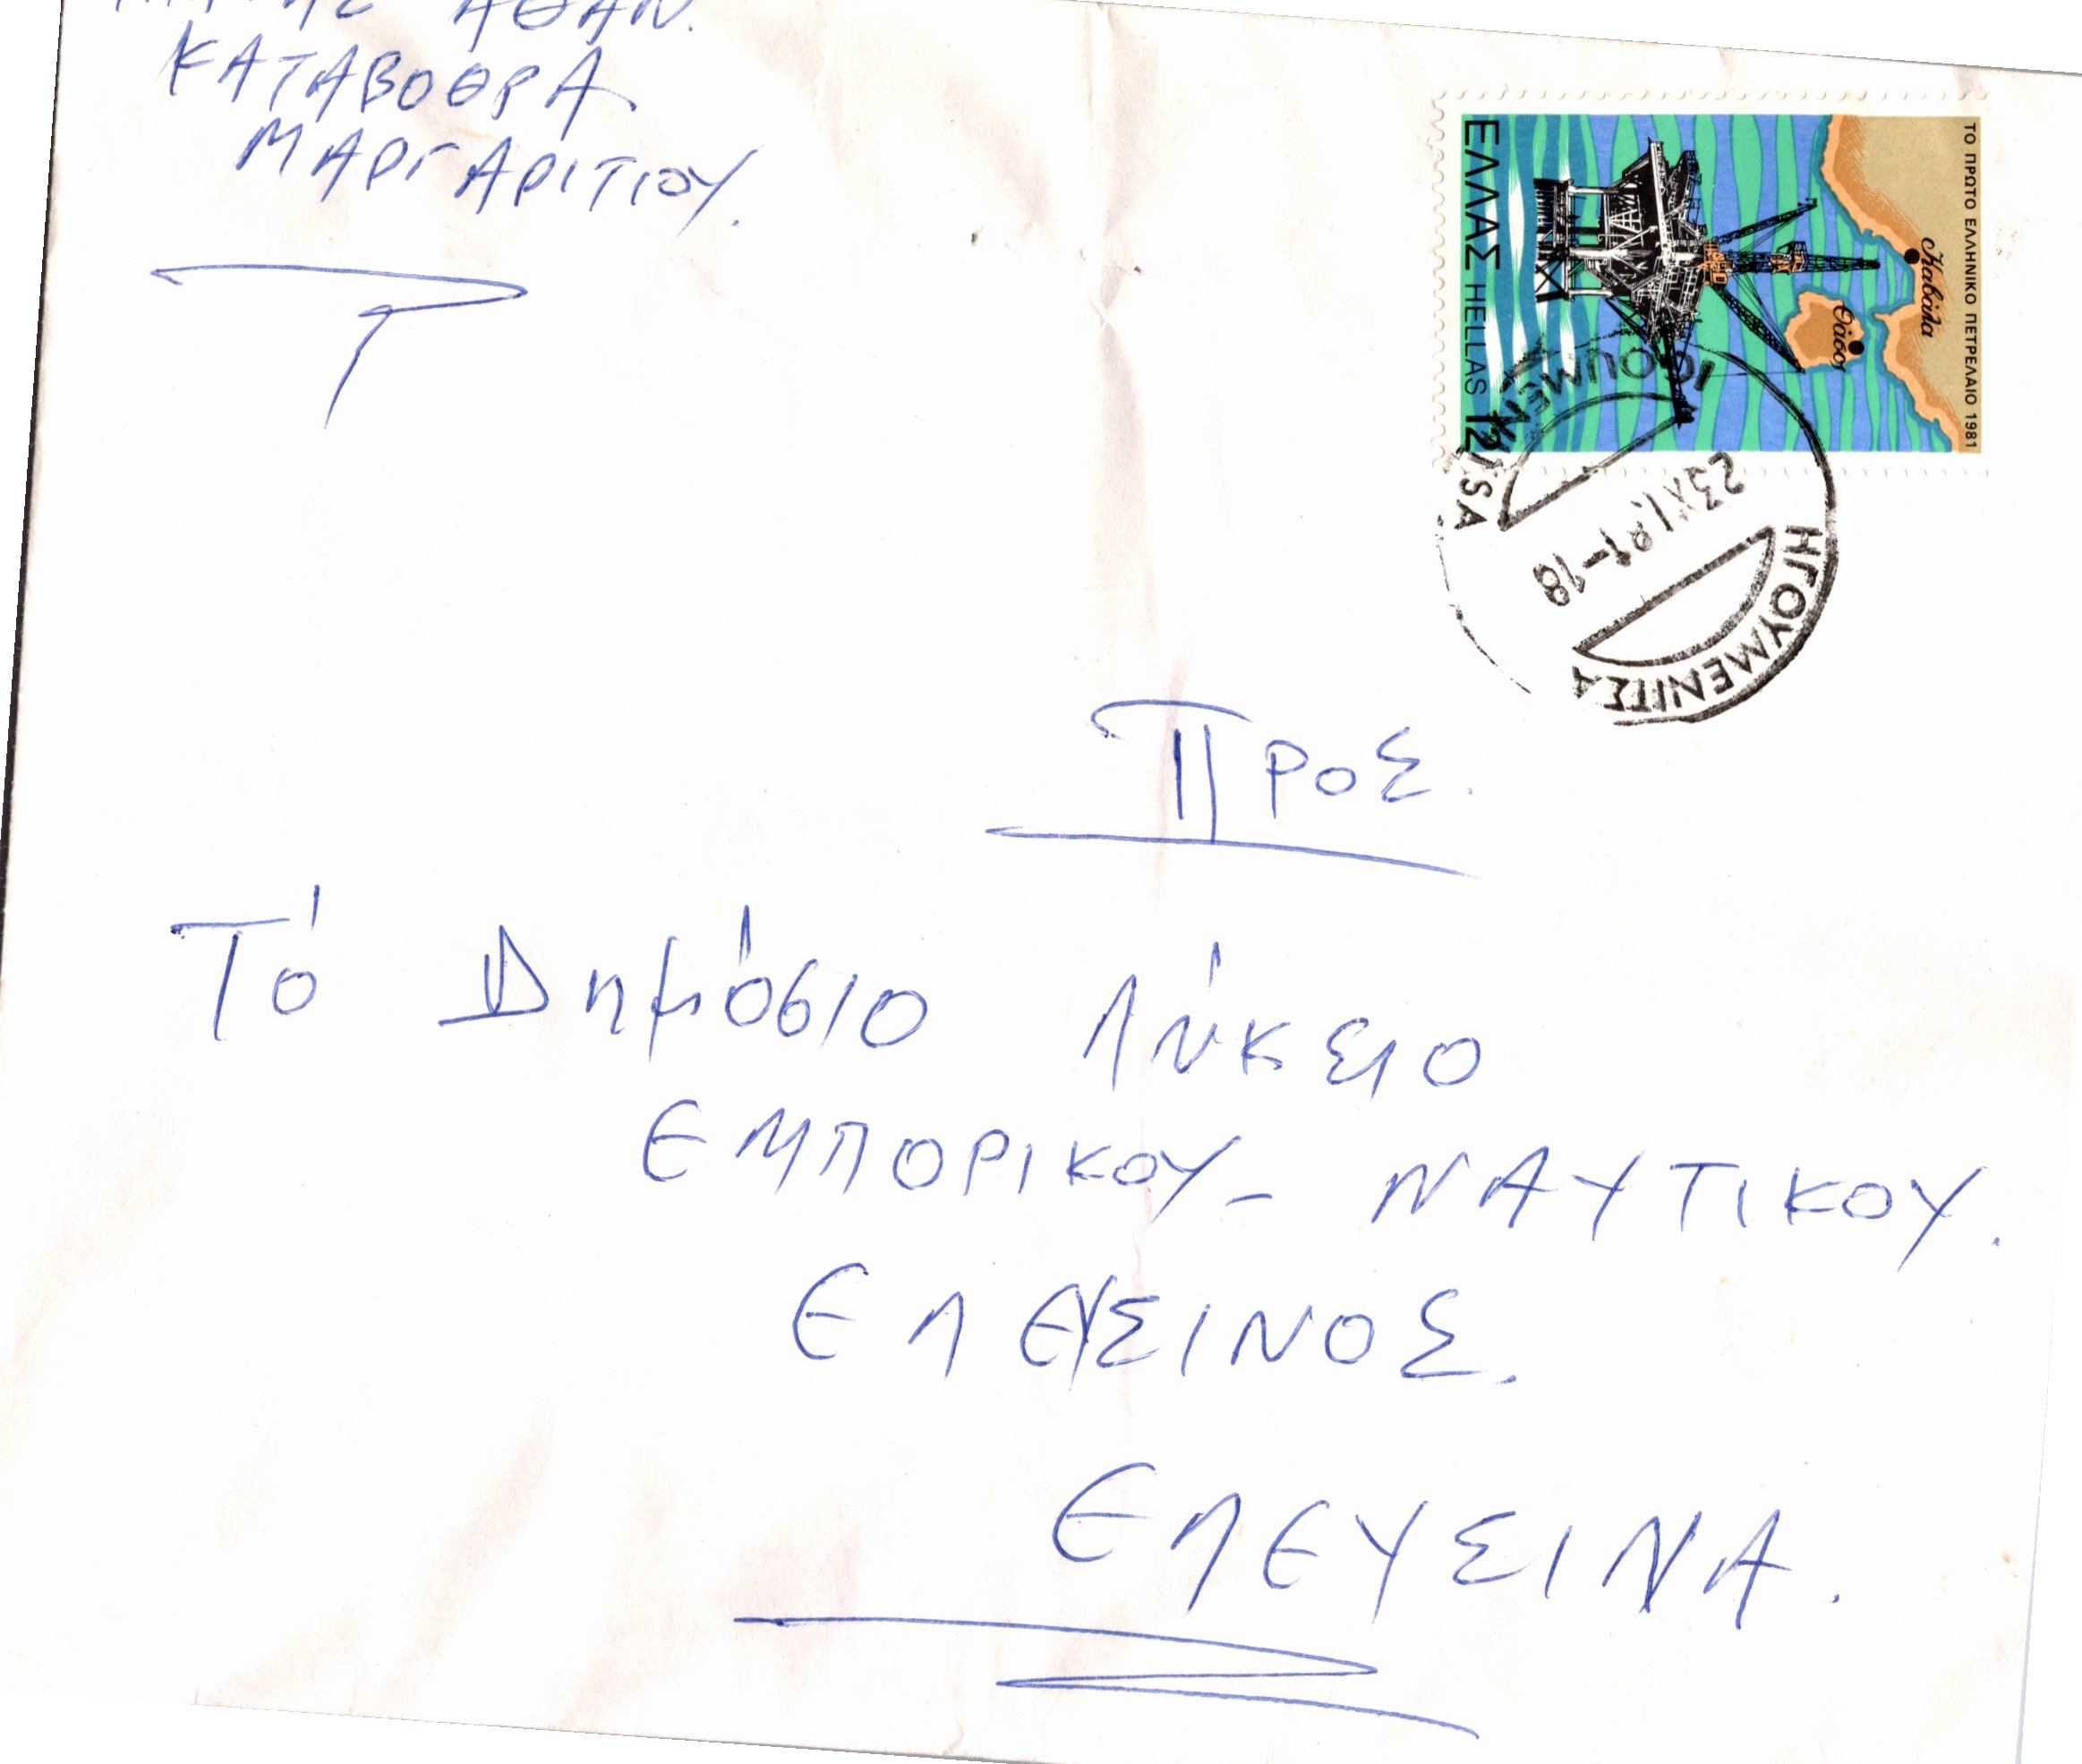 ΑΘΑΝ.
ΚΑΤΑΒΟΘΡΑ
ΜΑΡΓΑΡΙΤΙΟΥ.
ΤΟ ΠΡΩΤΟ ΕΛΛΗΝΙΚΟ ΠΕΤΡΕΛΑΙΟ 1981
Καβάλα
Θάσος
ΕΛΛΑΣ HELLAS 12
IGOUMENITSA
23 XI. 81-18
ΗΓΟΥΜΕΝΙΤΣΑ
Προς.
Τό Δημόσιο Λύκειο
ΕΜΠΟΡΙΚΟΥ - ΝΑΥΤΙΚΟΥ.
ΕΛΕΥΣΙΝΟΣ.
ΕΛΕΥΣΙΝΑ.